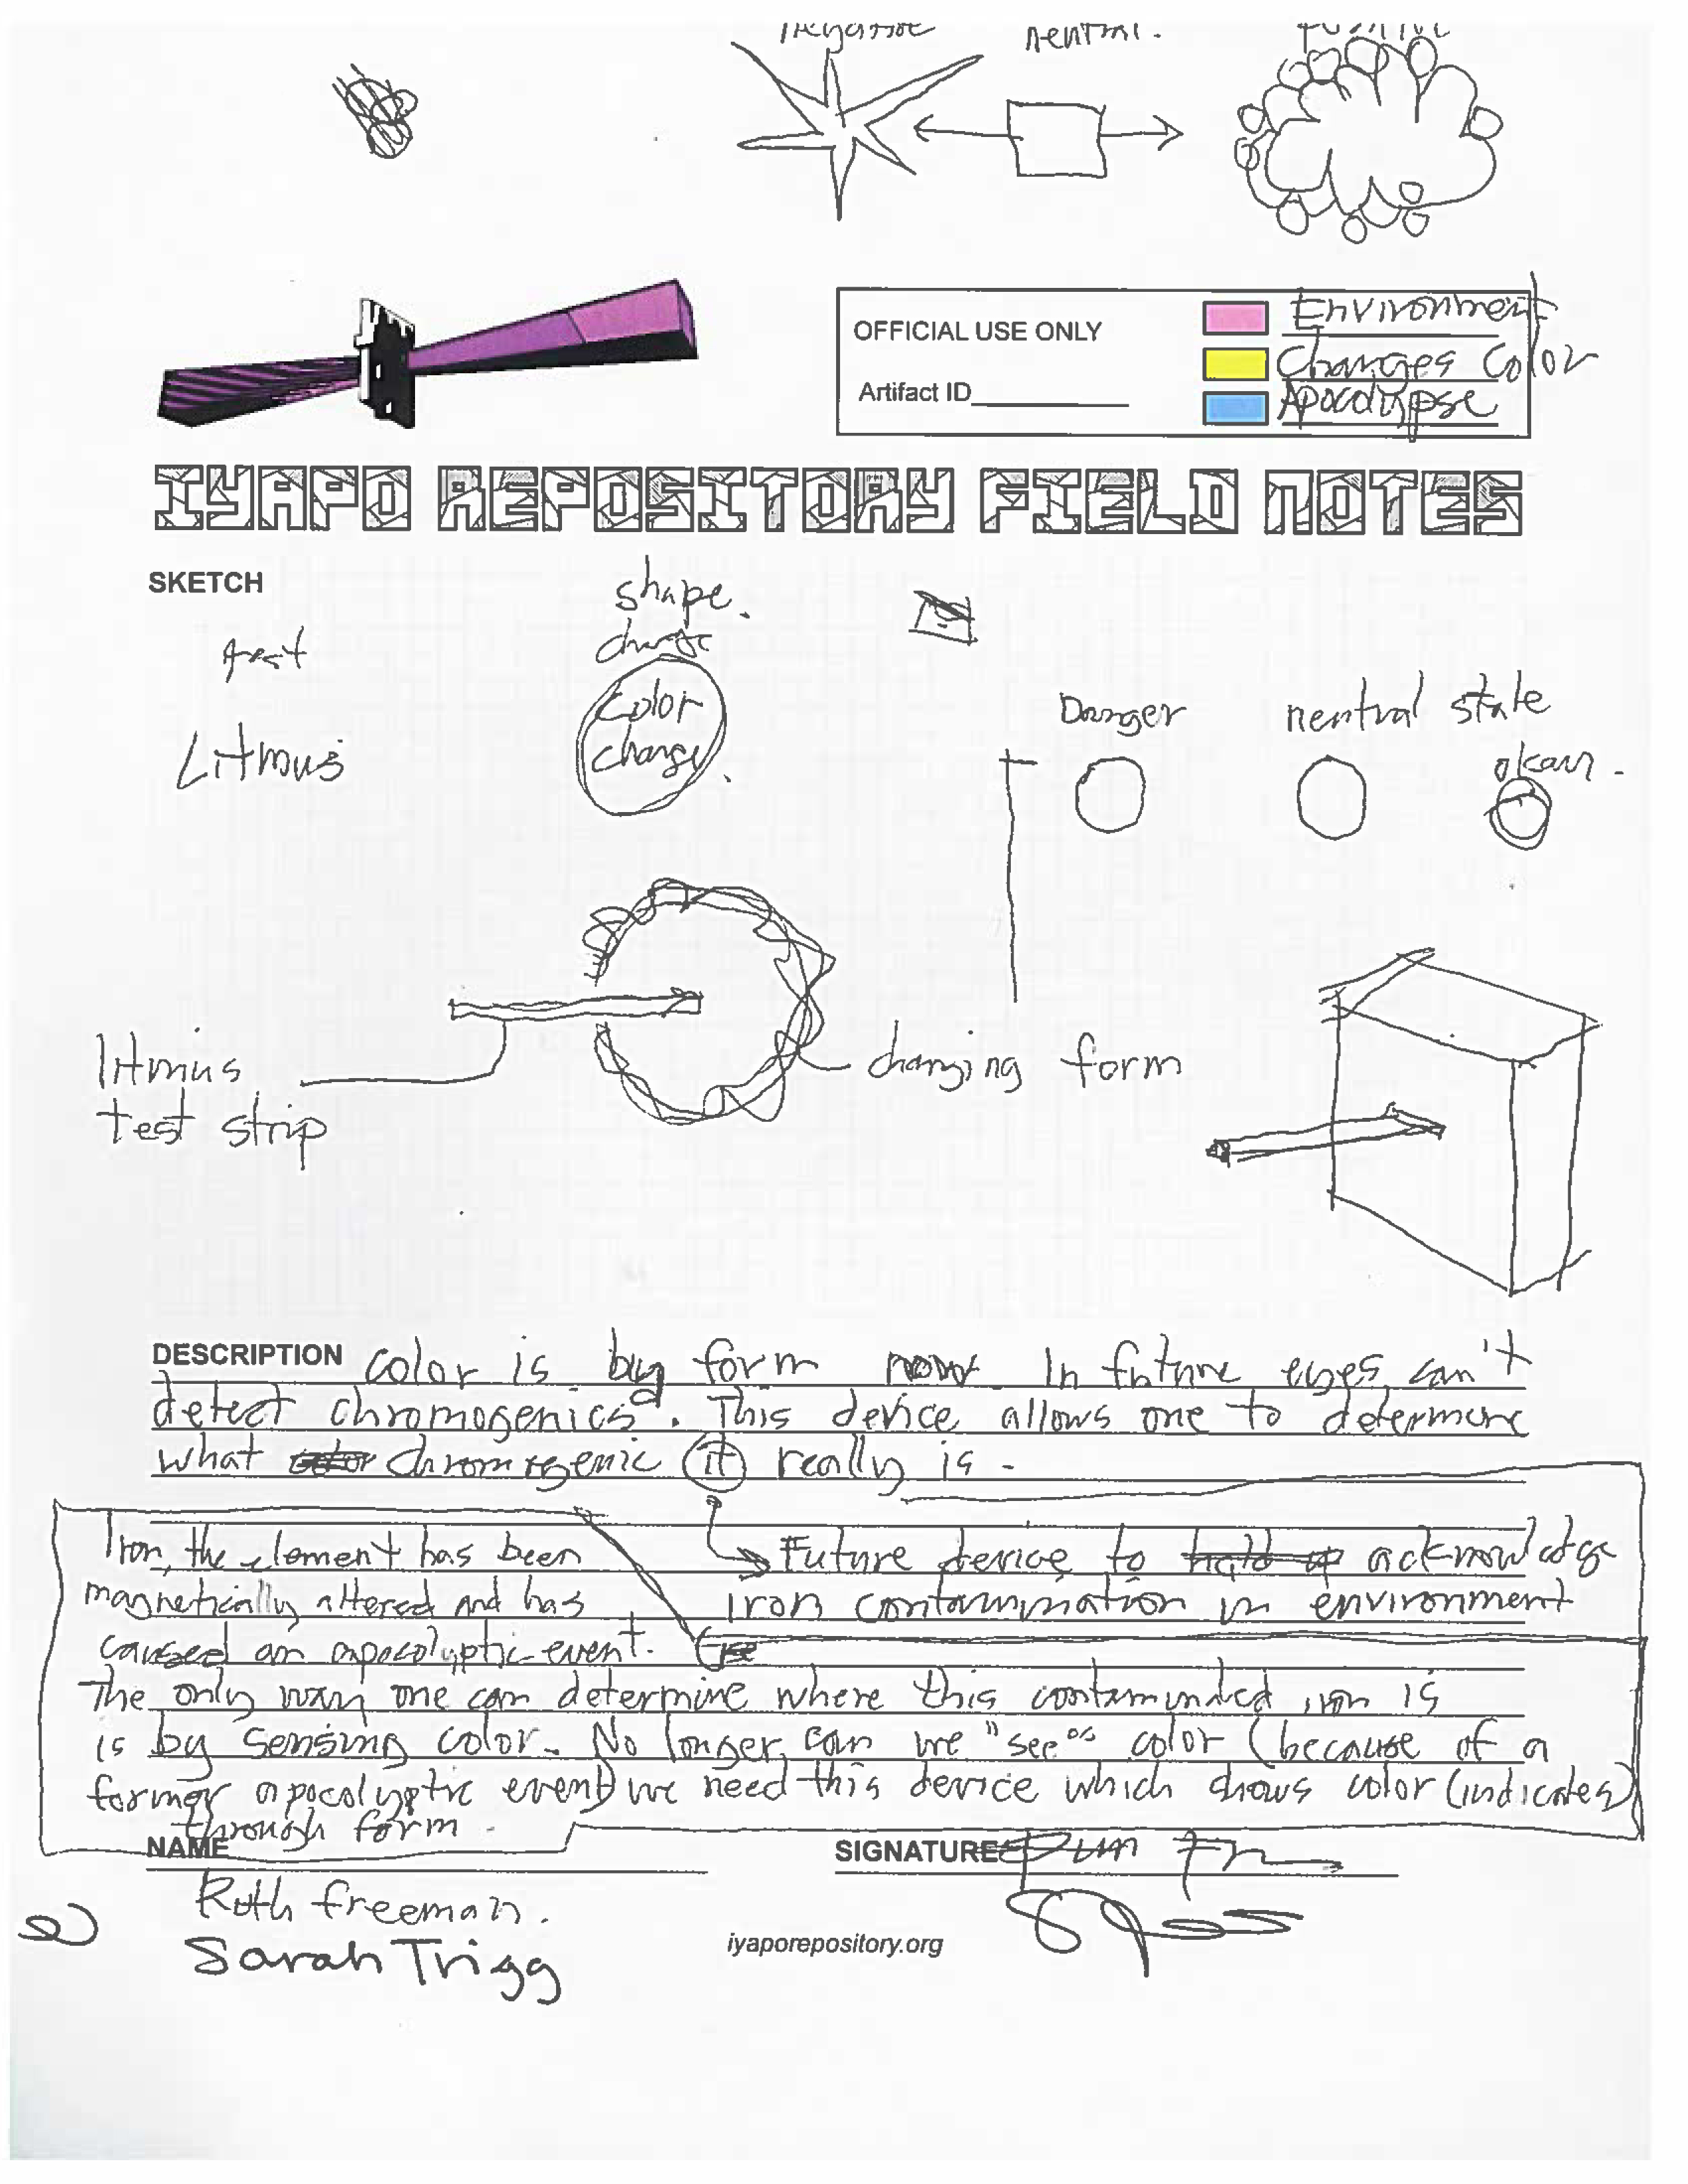 negative neutral. positive
OFFICIAL USE ONLY
Artifact ID
Environment
Changes Color
Apocalypse
IYAPO REPOSITORY FIELD NOTES
SKETCH
shape.
Litmus
Color
change.
Danger
neutral state
okay.
litmus
test strip
changing form
DESCRIPTION color is by form now In future eyes can't
detect chromogenics. This device allows one to determine
what chromogenic it really is -
Iron, the element has been
magnetically altered and has
caused an apocolyptic event.
Future device to acknowledge
iron contamination in environment
The only way one can determine where this contaminded iron is
is by sensing color. No longer can we "see" color (because of a
former apocolyptic event) we need this device which shows color (indicates)
through form.
NAME
SIGNATURE
Ruth freeman.
Sarah Trigg
iyaporepository.org